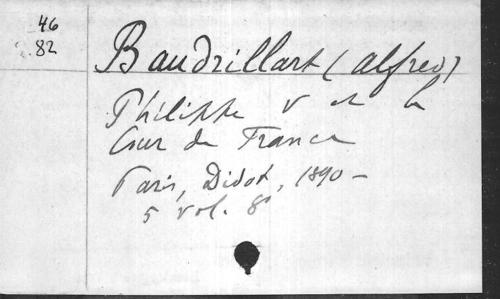 46
82
Baudrillart (Alfred)
Philippe V et la
Cour de France
Paris, Didot, 1890 –
5 vol. 8°